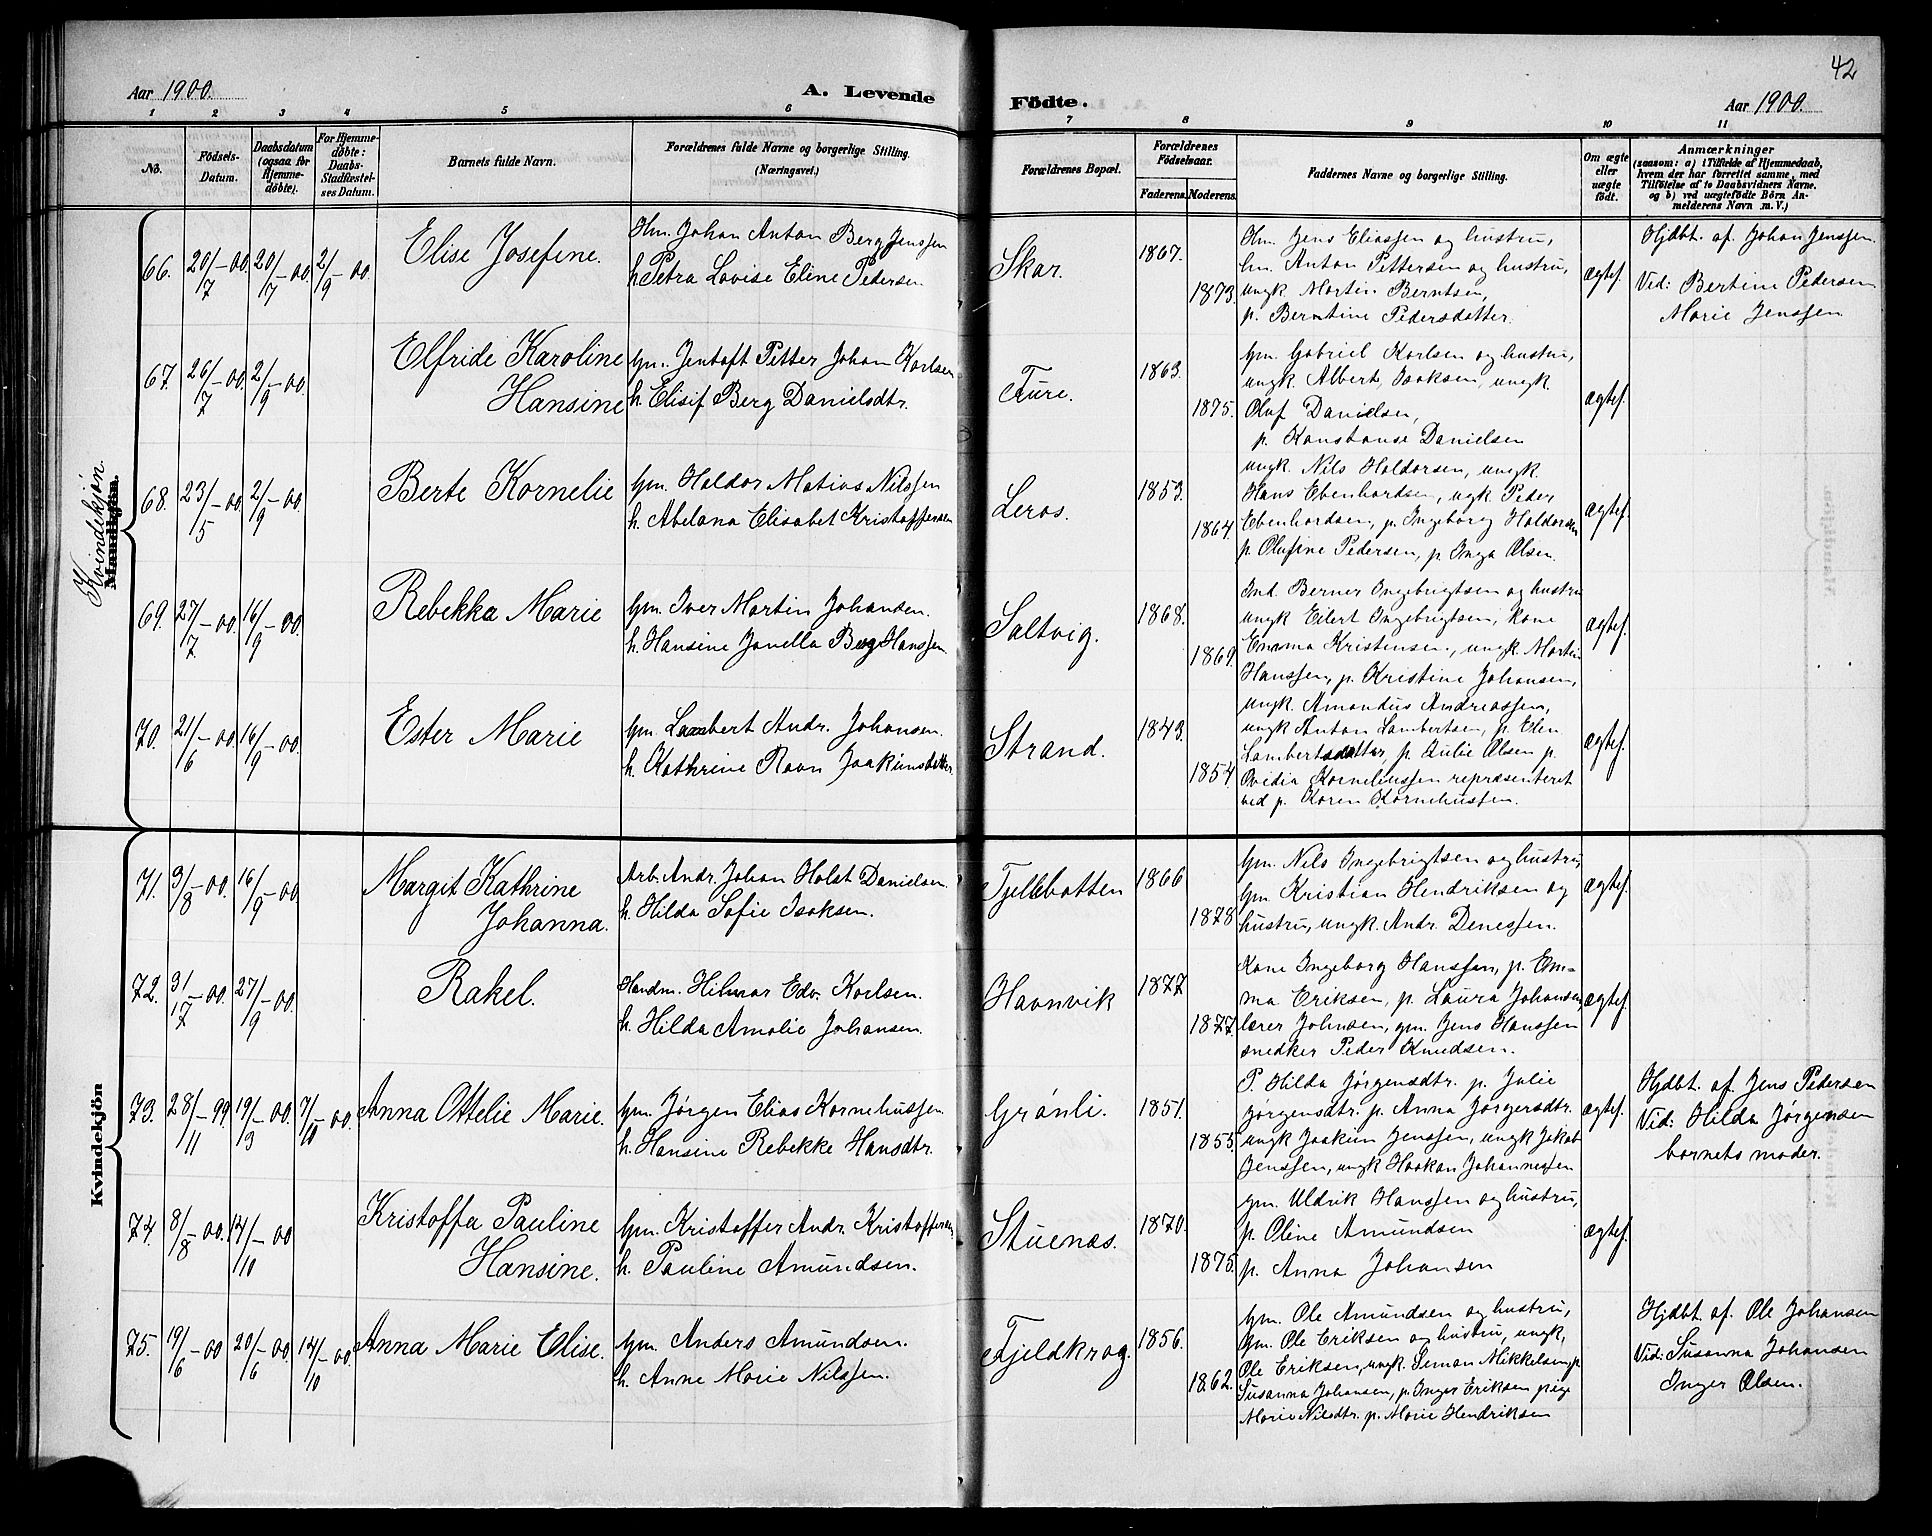 42
Aar 1900.
A. Levende
Fødte.
Aar 1900.
1 2 3 4 5 6 7 8 9 10 11
No.
Fødsels-Datum.
Daabsdatum (ogsaa før Hjemmedøbte).
For Hjemmedøbte: Daabs-Stadfæstelses Datum.
Barnets fulde Navn.
Forældrenes fulde Navne og borgerlige Stilling.
(Næringsvei.)
Forældrenes Bopæl.
Forældrenes Fødselsaar.
Faderens. Moderens.
Faddernes Navne og borgerlige Stilling.
Om ægte eller uægte født.
Anmærkninger
(saasom: a) i Tilfælde af Hjemmedaab,
hvem der har forrettet samme, med
Tilføielse af to Daabsvidners Navne,
og b) ved uægtefødte Børn An-
melderens Navn m. V.)
Kvindekjøn.
Mandkjøn.
66. 20/7-00. 20/7-00. 2/9-00.
Elise Josefine.
Hm. Johan Anton Berg Jenssen
h. Petra Lovise Eline Pedersen
Skar.
1867.
1873.
Hm. Jens Eliassen og hustru,
hm. Anton Pettersen og hustru,
ungk. Martin Berntsen,
p. Berntine Pedersdatter.
ægtef.
Hjdbt. af Johan Jenssen.
Vid: Bertine Pedersen
Marie Jenssen
67. 26/7-00. 2/9-00.
Elfride Karoline
Hansine
Gm. Jentoft Petter Johan Karlsen
h. Elisif Berg Danielsdtr.
Ture.
1863.
1875.
Gm. Gabriel Karlsen og hustru,
ungk. Albert Isaksen, ungk.
Oluf Danielsen,
p. Konstanse Danielsen
ægtef.
68. 23/5-00. 2/9-00.
Berte Kornelie
Gm. Haldor Matias Nilssen
h. Abelona Elisabet Kristoffersen
Leros.
1853.
1864.
ungk. Nils Haldorsen, ungk.
Hans Ebenhardsen, ugk. Peder
Ebenhardsen, p. Ingeborg Haldorsen
p. Olufine Pedersen, p. Inga Olsen.
ægtef.
69. 27/7-00. 16/9-00.
Rebekka Marie
Gm. Iver Martin Johansen.
h. Hansine Janella Berg Hanssen.
Saltvig.
1868.
1869.
Ind. Berner Ingebrigtsen og hustru
ungk Eilert Ingebrigtsen, kone
Emma Kristensen, ungk. Martin
Hanssen, p. Kristine Johansen,
ægtef.
70. 21/6-00. 16/9-00.
Ester Marie
Gm. Lambert Andr. Johansen.
h. Kathrine Ravn Joakimsdatter
Strand.
1843.
1854.
ungk. Amandus Andreassen,
ungk Anton Lambertsen, p. Elen
Lambertsdatter, p. Julie Olsen p.
Ovidia Korneliussen repræsenteret
ved p. Karen Korneliussen.
ægtef.
Kvindekjön
71. 3/8-00. 16/9-00.
Margit Kathrine
Johanna.
Arb. Andr. Johan Holst Danielsen.
h. Hilda Sofie Isaksen.
Tjeldbotten
1866
1878
Gm. Nils Ingebrigtsen og hustru,
gm. Kristian Hendriksen og
hustru, ungk. Andr. Denessen.
ægtef.
72. 31/7-00. 27/9-00.
Rakel.
Handm. Hilmar Edv. Karlsen.
h. Hilda Amalie Johansen.
Havnvik
1877
1877.
Kone Ingeborg Hanssen, p. Em-
ma Eriksen, p. Laura Johansen
lærer Johnsen, gm. Jens Hanssen
snedker Peder Knudsen.
ægtef.
73. 28/11-99. 19/3-00. 7/10-00.
Anna Ottelie Marie.
Gm. Jørgen Elias Korneliussen
h. Hansine Rebekke Hansdtr.
Grønli.
1851.
1855.
P. Hilda Jørgensdtr. p. Julie
Jørgensdtr. p. Anna Jørgensdtr.
ungk Joakim Jenssen, ungk Jakob
Jenssen, ungk Haakon Johannessen
ægtef.
Hjdbt. af Jens Pedersen
Vid: Hilda Jørgensen
barnets moder.
74. 8/8-00. 14/10-00
Kristoffa Pauline
Hansine.
Gm. Kristoffer Andr. Kristoffersen
h. Pauline Amundsen.
Stuenæs.
1870.
1875.
gm. Uldrik Hanssen og hustru,
p. Oline Amundsen
p. Anna Johansen
ægtef.
75. 19/6-00 20/6-00. 14/10-00.
Anna Marie Elise.
Gm. Anders Amundsen.
h. Anne Marie Nilssen.
Fjeldkrog.
1856.
1862.
Gm. Ole Amundsen og hustru,
Gm. Ole Eriksen og hustru, ungk.
Ole Eriksen, ungk. Simon Mikkelsen, p
Susanna Johansen, p. Inger Eriksen pige
Marie Nilsdtr. p. Marie Hendriksen
Hjdbt. af Ole Johansen
Vid: Susanna Johansen
Inger Olsen.